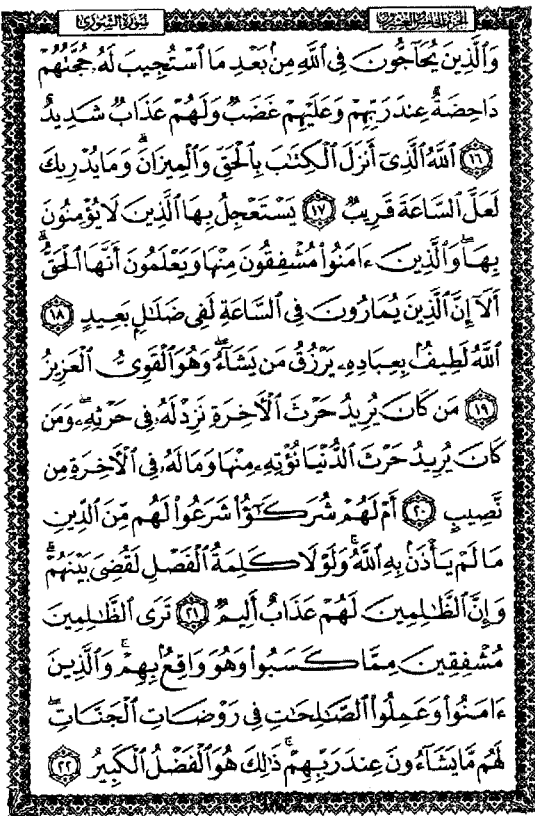 الجزء الخامس والعشرون سورة الشورى
وَالَّذِينَ يُحَاجُّونَ فِى اللَّهِ مِنۢ بَعْدِ مَا ٱسْتُجِيبَ لَهُۥ حُجَّتُهُمْ
دَاحِضَةٌ عِندَ رَبِّهِمْ وَعَلَيْهِمْ غَضَبٌ وَلَهُمْ عَذَابٌ شَدِيدٌ
﴿١٦﴾ ٱللَّهُ ٱلَّذِىٓ أَنزَلَ ٱلْكِتَـٰبَ بِٱلْحَقِّ وَٱلْمِيزَانَ ۗ وَمَا يُدْرِيكَ
لَعَلَّ ٱلسَّاعَةَ قَرِيبٌ ﴿١٧﴾ يَسْتَعْجِلُ بِهَا ٱلَّذِينَ لَا يُؤْمِنُونَ
بِهَا ۖ وَٱلَّذِينَ ءَامَنُوا۟ مُشْفِقُونَ مِنْهَا وَيَعْلَمُونَ أَنَّهَا ٱلْحَقُّ ۗ
أَلَآ إِنَّ ٱلَّذِينَ يُمَارُونَ فِى ٱلسَّاعَةِ لَفِى ضَلَـٰلٍۭ بَعِيدٍ ﴿١٨﴾
ٱللَّهُ لَطِيفٌۢ بِعِبَادِهِۦ يَرْزُقُ مَن يَشَآءُ ۖ وَهُوَ ٱلْقَوِىُّ ٱلْعَزِيزُ
﴿١٩﴾ مَن كَانَ يُرِيدُ حَرْثَ ٱلْـَٔاخِرَةِ نَزِدْ لَهُۥ فِى حَرْثِهِۦ ۖ وَمَن
كَانَ يُرِيدُ حَرْثَ ٱلدُّنْيَا نُؤْتِهِۦ مِنْهَا وَمَا لَهُۥ فِى ٱلْـَٔاخِرَةِ مِن
نَّصِيبٍ ﴿٢٠﴾ أَمْ لَهُمْ شُرَكَـٰٓؤُا۟ شَرَعُوا۟ لَهُم مِّنَ ٱلدِّينِ
مَا لَمْ يَأْذَنۢ بِهِ ٱللَّهُ ۚ وَلَوْلَا كَلِمَةُ ٱلْفَصْلِ لَقُضِىَ بَيْنَهُمْ ۗ
وَإِنَّ ٱلظَّـٰلِمِينَ لَهُمْ عَذَابٌ أَلِيمٌ ﴿٢١﴾ تَرَى ٱلظَّـٰلِمِينَ
مُشْفِقِينَ مِمَّا كَسَبُوا۟ وَهُوَ وَاقِعٌۢ بِهِمْ ۗ وَٱلَّذِينَ
ءَامَنُوا۟ وَعَمِلُوا۟ ٱلصَّـٰلِحَـٰتِ فِى رَوْضَاتِ ٱلْجَنَّاتِ ۖ
لَهُم مَّا يَشَآءُونَ عِندَ رَبِّهِمْ ۚ ذَٰلِكَ هُوَ ٱلْفَضْلُ ٱلْكَبِيرُ ﴿٢٢﴾